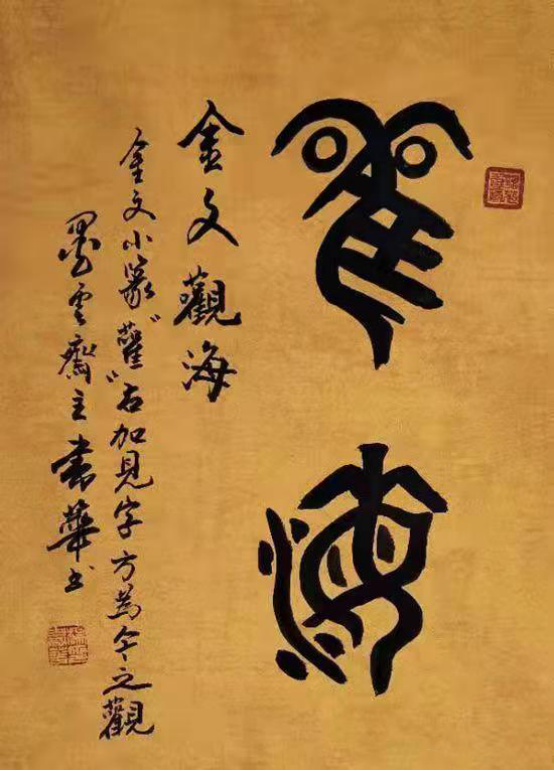 雚海
金文觀海
金文小篆“雚”右加見字方為今之觀
墨雲齋主華书